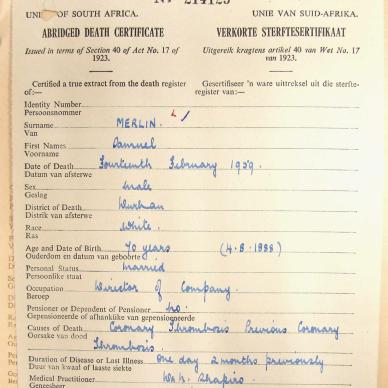 Nº 214125
UNIE OF SOUTH AFRICA. UNIE VAN SUID-AFRIKA.
ABRIDGED DEATH CERTIFICATE VERKORTE STERFTESERTIFIKAAT
Issued in terms of Section 40 of Act No. 17 of 1923. Uitgereik kragtens artikel 40 van Wet No. 17 van 1923.
Certified a true extract from the death register of:— Gesertifiseer 'n ware uittreksel uit die sterfteregister van:—
Identity Number
Persoonsnommer
Surname MERLIN.
Van
First Names Samuel
Voorname
Date of Death Fourteenth February 1959.
Datum van afsterwe
Sex Male
Geslag
District of Death Durban
Distrik van afsterwe
Race White.
Ras
Age and Date of Birth 70 years (4.8.1888)
Ouderdom en datum van geboorte
Personal Status Married
Persoonlike staat
Occupation Director of Company.
Beroep
Pensioner or Dependent of Pensioner No.
Gepensioeneerde of afhanklike van gepensioeneerde
Causes of Death Coronary Thrombosis Previous Coronary
Oorsake van dood Thrombosis.
Duration of Disease or Last Illness One day 2 months previously
Duur van kwaal of laaste siekte
Medical Practitioner Shapiro
Geneesheer